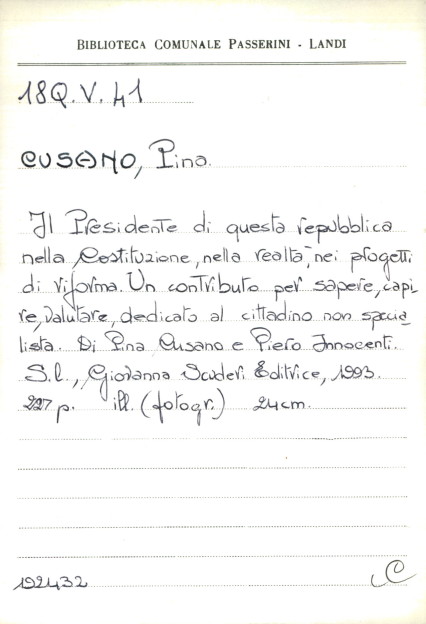 BIBLIOTECA COMUNALE PASSERINI - LANDI
18Q.V.41
CUSANO, Pina.
Il Presidente di questa repubblica
nella Costituzione, nella realtà, nei progetti
di riforma. Un contributo per sapere, capi
re, valutare, dedicato al cittadino non specia
lista. Di Pina Cusano e Piero Innocenti.
S.l., Giovanna Scuderi Editrice, 1993.
227 p. ill. (fotogr.) 24 cm.
192432 C